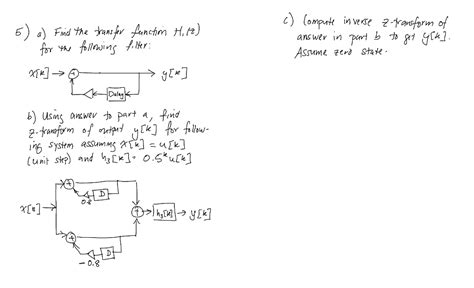 5) a) Find the transfer function H₁(z)
for the following filter:
x[k] → + → y[k]
Delay
b) Using answer to part a, find
z-transform of output y[k] for follow-
ing system assuming x[k] = u[k]
(unit step) and h₃[k] = 0.5ᵏ u[k]
+
D
0.8
x[z] → + → h₃[k] → y[k]
+
D
-0.8
c) Compute inverse z-transform of
answer in part b to get y[k].
Assume zero state.